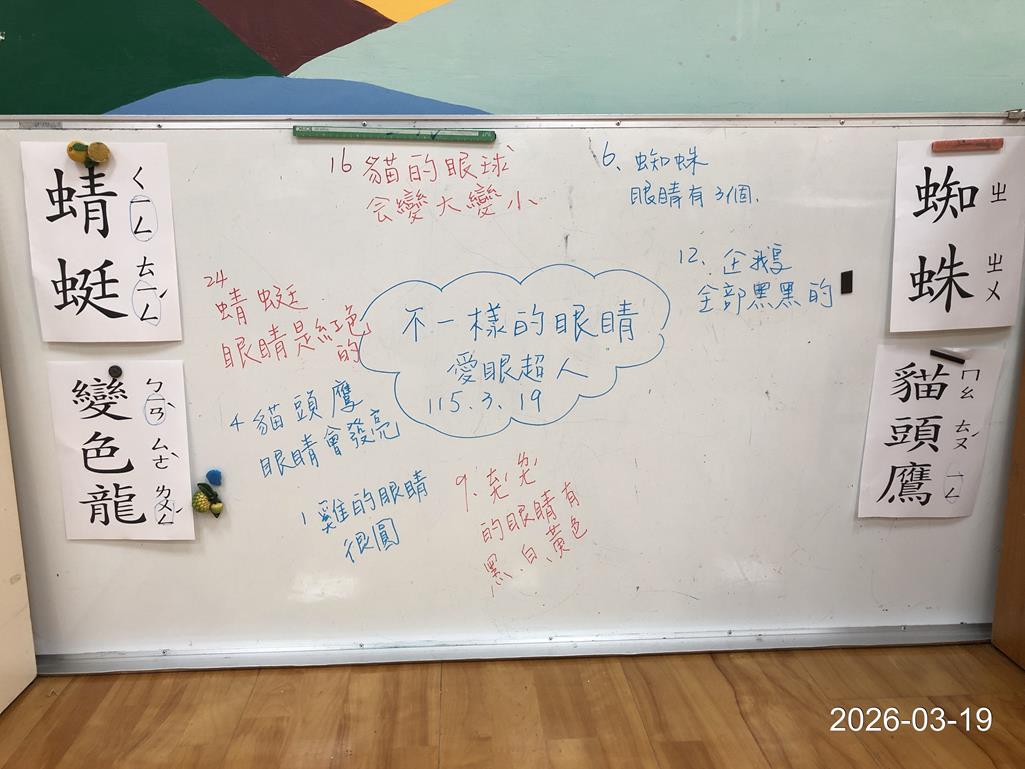 蜻 ㄑㄧㄥ
蜓 ㄊㄧㄥˊ
變 ㄅㄧㄢˋ
色 ㄙㄜˋ
龍 ㄌㄨㄥˊ
16 貓的眼球
会變大變小
6、蜘蛛
眼睛有3個.
24
蜻蜓
眼睛是紅色
的
12、
全部黑黑的
不一樣的眼睛
愛眼超人
115.3.19
4 貓頭鷹
眼睛會發亮
1 雞的眼睛
很圓
9、
的眼睛有
黑、白、黃色
蜘 ㄓ
蛛 ㄓㄨ
貓 ㄇㄠ
頭 ㄊㄡˊ
鷹 ㄧㄥ
2026-03-19